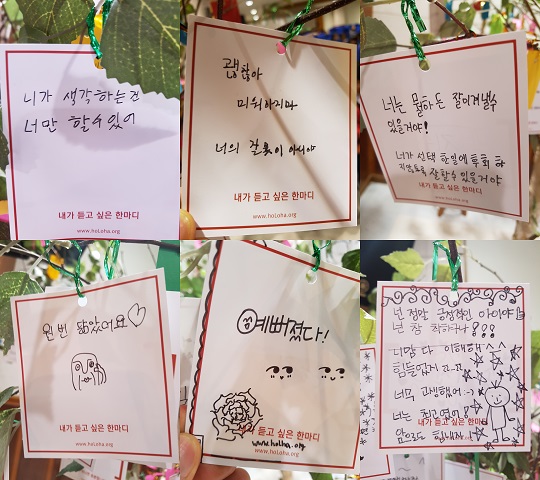 니가 생각하는건
너만 할수있어
내가 듣고 싶은 한마디
www.holoha.org
괜찮아
미워하지마
너의 잘못이 아니야
내가 듣고 싶은 한마디
www.holoha.org
너는 뭘하든 잘이겨낼수
있을거야!
너가 선택한일에 후회하
지않도록 잘할수 있을거야
내가 듣고 싶은 한마디
www.holoha.org
원번 닮았어요♡
내가 듣고 싶은 한마디
www.holoha.org
예뻐졌다!
내가 듣고 싶은 한마디
www.holoha.org
www.holoha.org
넌 정말 긍정적인 아이야
넌 참 착하구나!
니맘 다 이해해^^
힘들었지
너무 고생했어:-)
너는 최고였어!
내가 듣고 싶은 한마디
앞으로도 힘내자